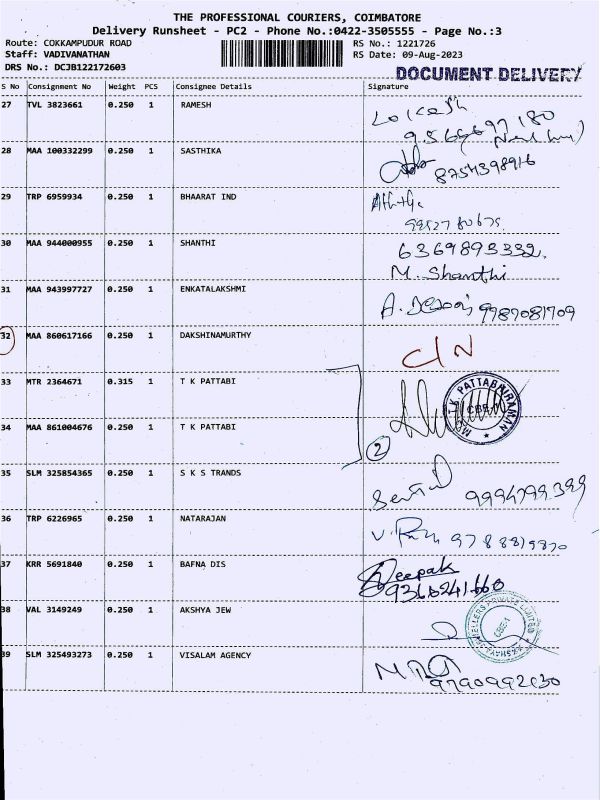 THE PROFESSIONAL COURIERS, COIMBATORE
Delivery Runsheet - PC2 - Phone No.:0422-3505555 - Page No.:3
Route: COKKAMPUDUR ROAD RS No.: 1221726
Staff: VADIVANATHAN RS Date: 09-Aug-2023
DRS No.: DCJB122172603
DOCUMENT DELIVERY
S No Consignment No Weight PCS Consignee Details Signature
27 TVL 3823661 0.250 1 RAMESH
28 MAA 100332299 0.250 1 SASTHIKA
8754398916
29 TRP 6959934 0.250 1 BHAARAT IND
30 MAA 944000955 0.250 1 SHANTHI 6369893332.
M. Shanthi
31 MAA 943997727 0.250 1 ENKATALAKSHMI
A. 9989081709
32 MAA 860617166 0.250 1 DAKSHINAMURTHY
C/N
33 MTR 2364671 0.315 1 T K PATTABI
T.K. PATTABHIRAMAN
34 MAA 861004676 0.250 1 T K PATTABI
2
35 SLM 325854365 0.250 1 S K S TRANDS
36 TRP 6226965 0.250 1 NATARAJAN
37 KRR 5691840 0.250 1 BAFNA DIS Deepak
9360241660
38 VAL 3149249 0.250 1 AKSHYA JEW
JEWELLERS PRIVATE LIMITED
CBE-1
39 SLM 325493273 0.250 1 VISALAM AGENCY